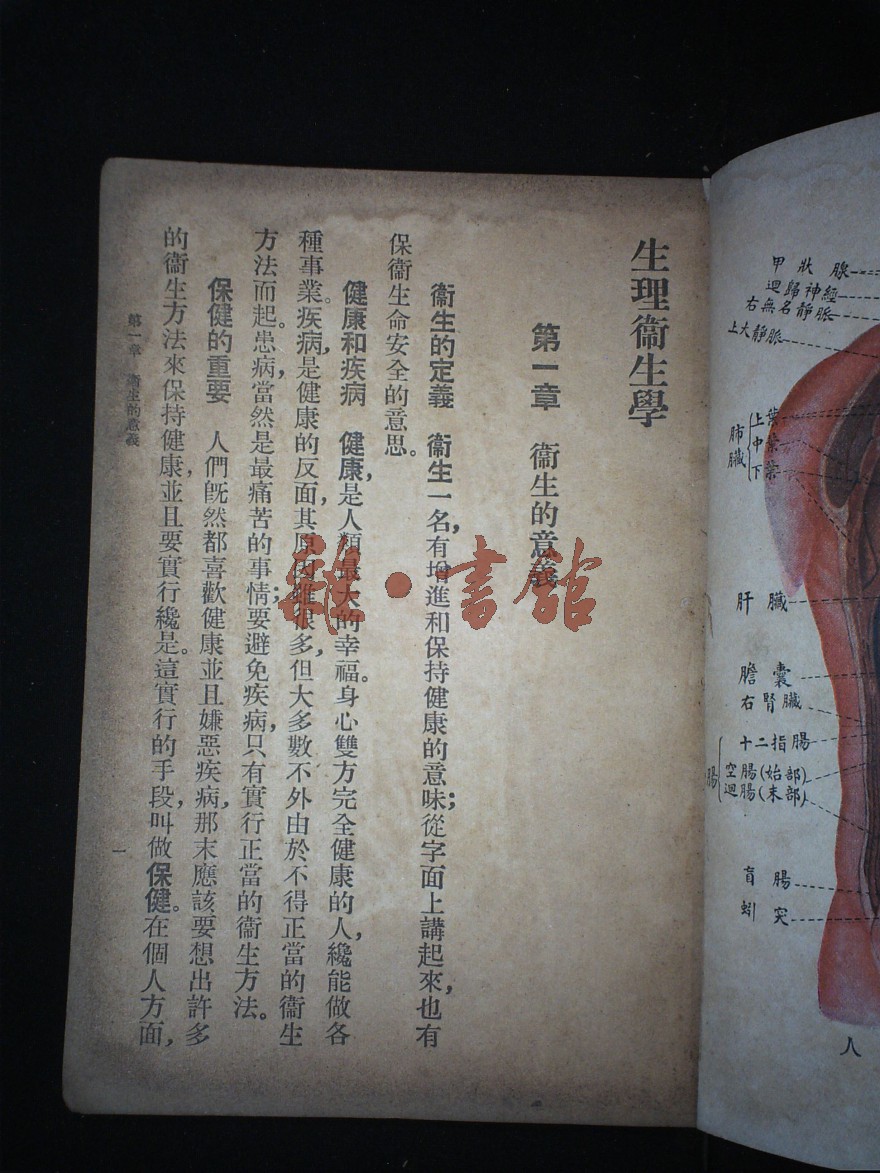 生理衞生學
第一章　衞生的意義
衞生的定義　衞生一名，有增進和保持健康的意味；從字面上講起來，也有
保衞生命安全的意思。
健康和疾病　健康，是人類最大的幸福。身心雙方完全健康的人，纔能做各
種事業。疾病，是健康的反面，其原因雖很多，但大多數不外由於不得正當的衞生
方法而起。患病，當然是最痛苦的事情；要避免疾病，只有實行正當的衞生方法。
保健的重要　人們旣然都喜歡健康並且嫌惡疾病，那末應該要想出許多
的衞生方法來保持健康，並且要實行纔是。這實行的手段，叫做保健。在個人方面，
第一章　衞生的意義
一
雜·書館
甲狀腺
迴歸神經
右無名靜脈
上大靜脈
肺臟
上葉
中葉
下葉
肝臟
膽囊
右腎臟
腸
十二指腸
空腸(始部)
迴腸(末部)
盲腸
蚓突
人